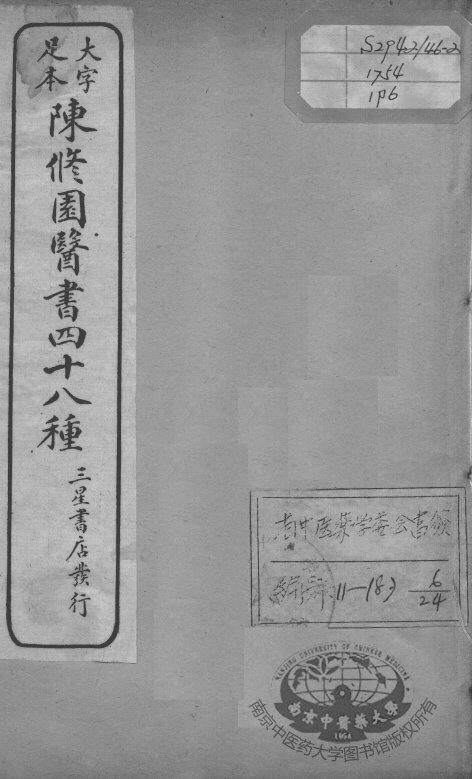 大字
足本
陳修園醫書四十八種
三星書店發行
S294.2/46-2
1754
1P6
中医药学委会书
编号 11-183 6/24
NANJING UNIVERSITY OF CHINESE MEDICINE
南京中醫藥大學
1954
南京中医药大学图书馆版权所有